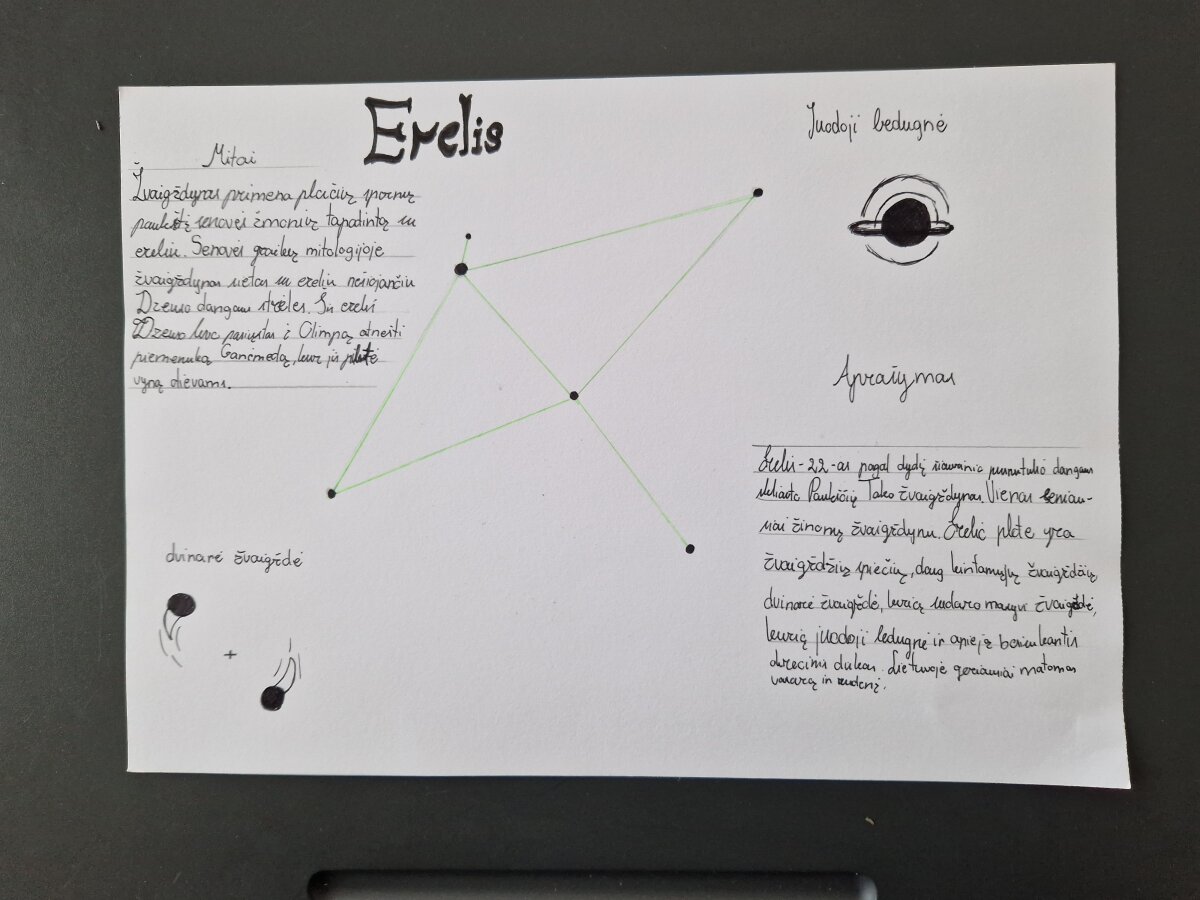 Erelis
Mitai
Žvaigždynas primena plačių sparnų
paukštį senovei žmonių tapatintą su
ereliu. Senovei graikų mitologijoje
žvaigždynas sietas su ereliu nešiojančiu
Dzeuso dangaus strėles. Šis erelis
Dzeuso buvo pasiųstas į Olimpą atnešti
piemenuką Ganimedą, kur jis pilstė
vyną dievams.
Juodoji bedugnė
Aprašymas
Erelis-22-as pagal dydį šiaurinio pusrutulio dangaus
skliauto Paukščių Tako žvaigždynas. Vienas seniau-
siai žinomų žvaigždynu. Erelio plote yra
žvaigždžių spiečių, daug kintamųjų žvaigždžių
dvinarė žvaigždė, kurią sudaro masyvi žvaigždė,
kurią juodoji bedugnė ir apie ją besisukantis
akrecinis diskas. Lietuvoje geriausiai matomas
vasarą ir rudenį.
dvinarė žvaigždė
+